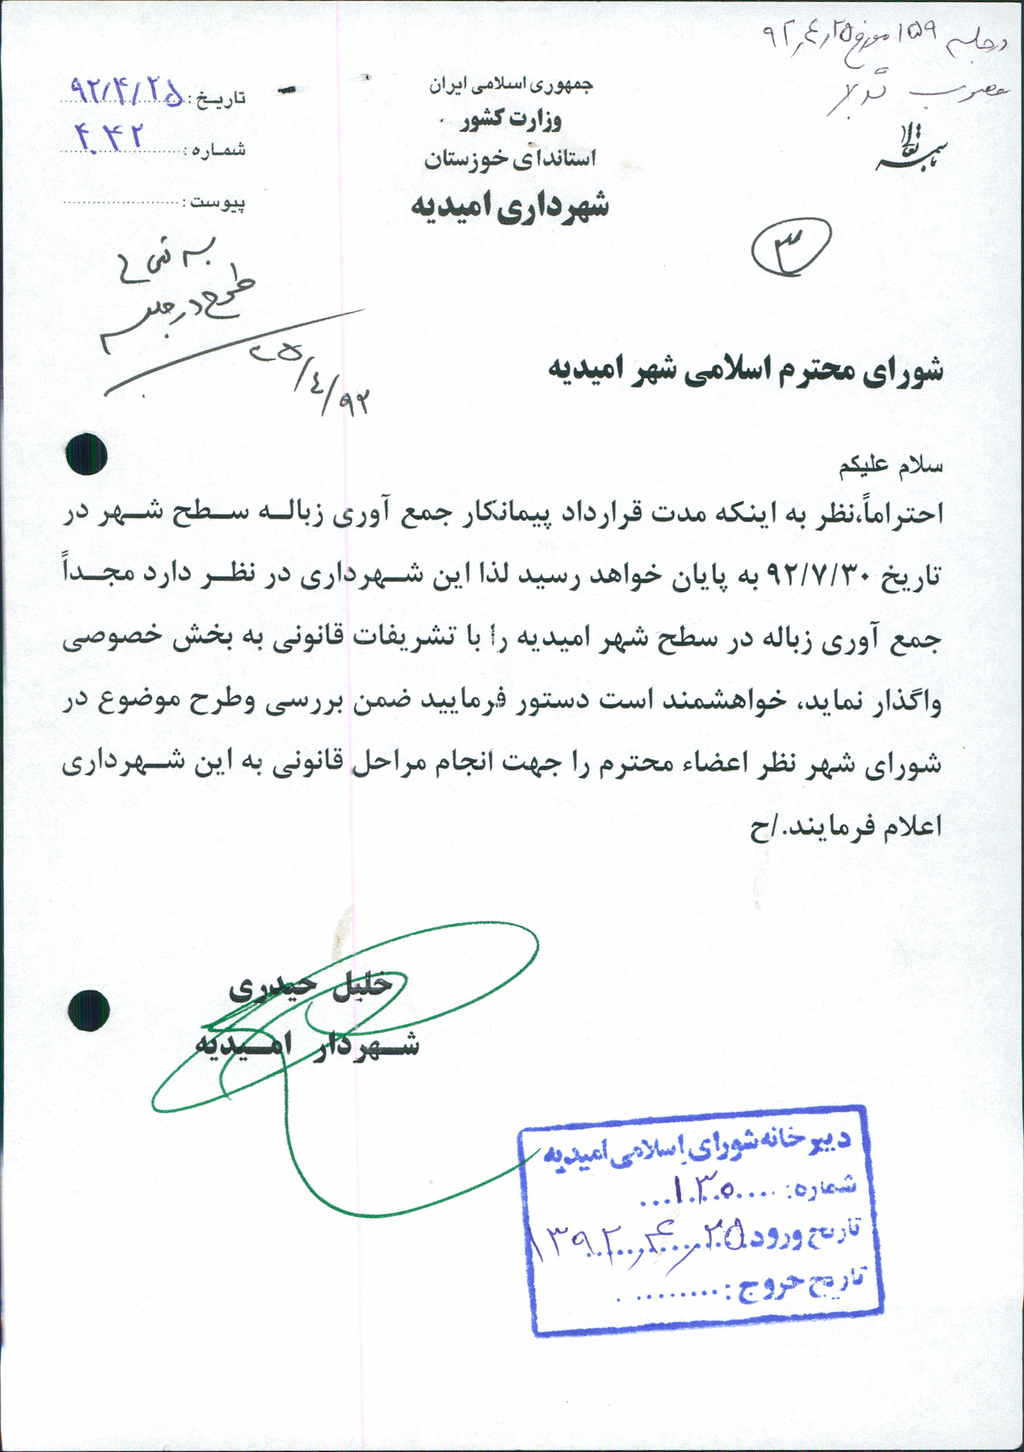 در جلسه ۱۵۹ مورخ ۹۲/۴/۲۵
مصوب گردید
باسمه تعالی
جمهوری اسلامی ایران
وزارت کشور
استانداری خوزستان
شهرداری امیدیه
تاریخ : ۹۲/۴/۲۵
شماره : ۴۰۴۲
پیوست :
۳
طرح در جلسه
۹۲/۴/۲۵
شورای محترم اسلامی شهر امیدیه
سلام علیکم
احتراماً،نظر به اینکه مدت قرارداد پیمانکار جمع آوری زباله سطح شهر در
تاریخ ۹۲/۷/۳۰ به پایان خواهد رسید لذا این شهرداری در نظر دارد مجداً
جمع آوری زباله در سطح شهر امیدیه را با تشریفات قانونی به بخش خصوصی
واگذار نماید، خواهشمند است دستور فرمایید ضمن بررسی وطرح موضوع در
شورای شهر نظر اعضاء محترم را جهت انجام مراحل قانونی به این شهرداری
اعلام فرمایند./ح
خلیل حیدری
شهردار امیدیه
دبیرخانه شورای اسلامی امیدیه
شماره: ۱۳۰
تاریخ ورود ۱۳۹۲/۴/۲۵
تاریخ خروج :